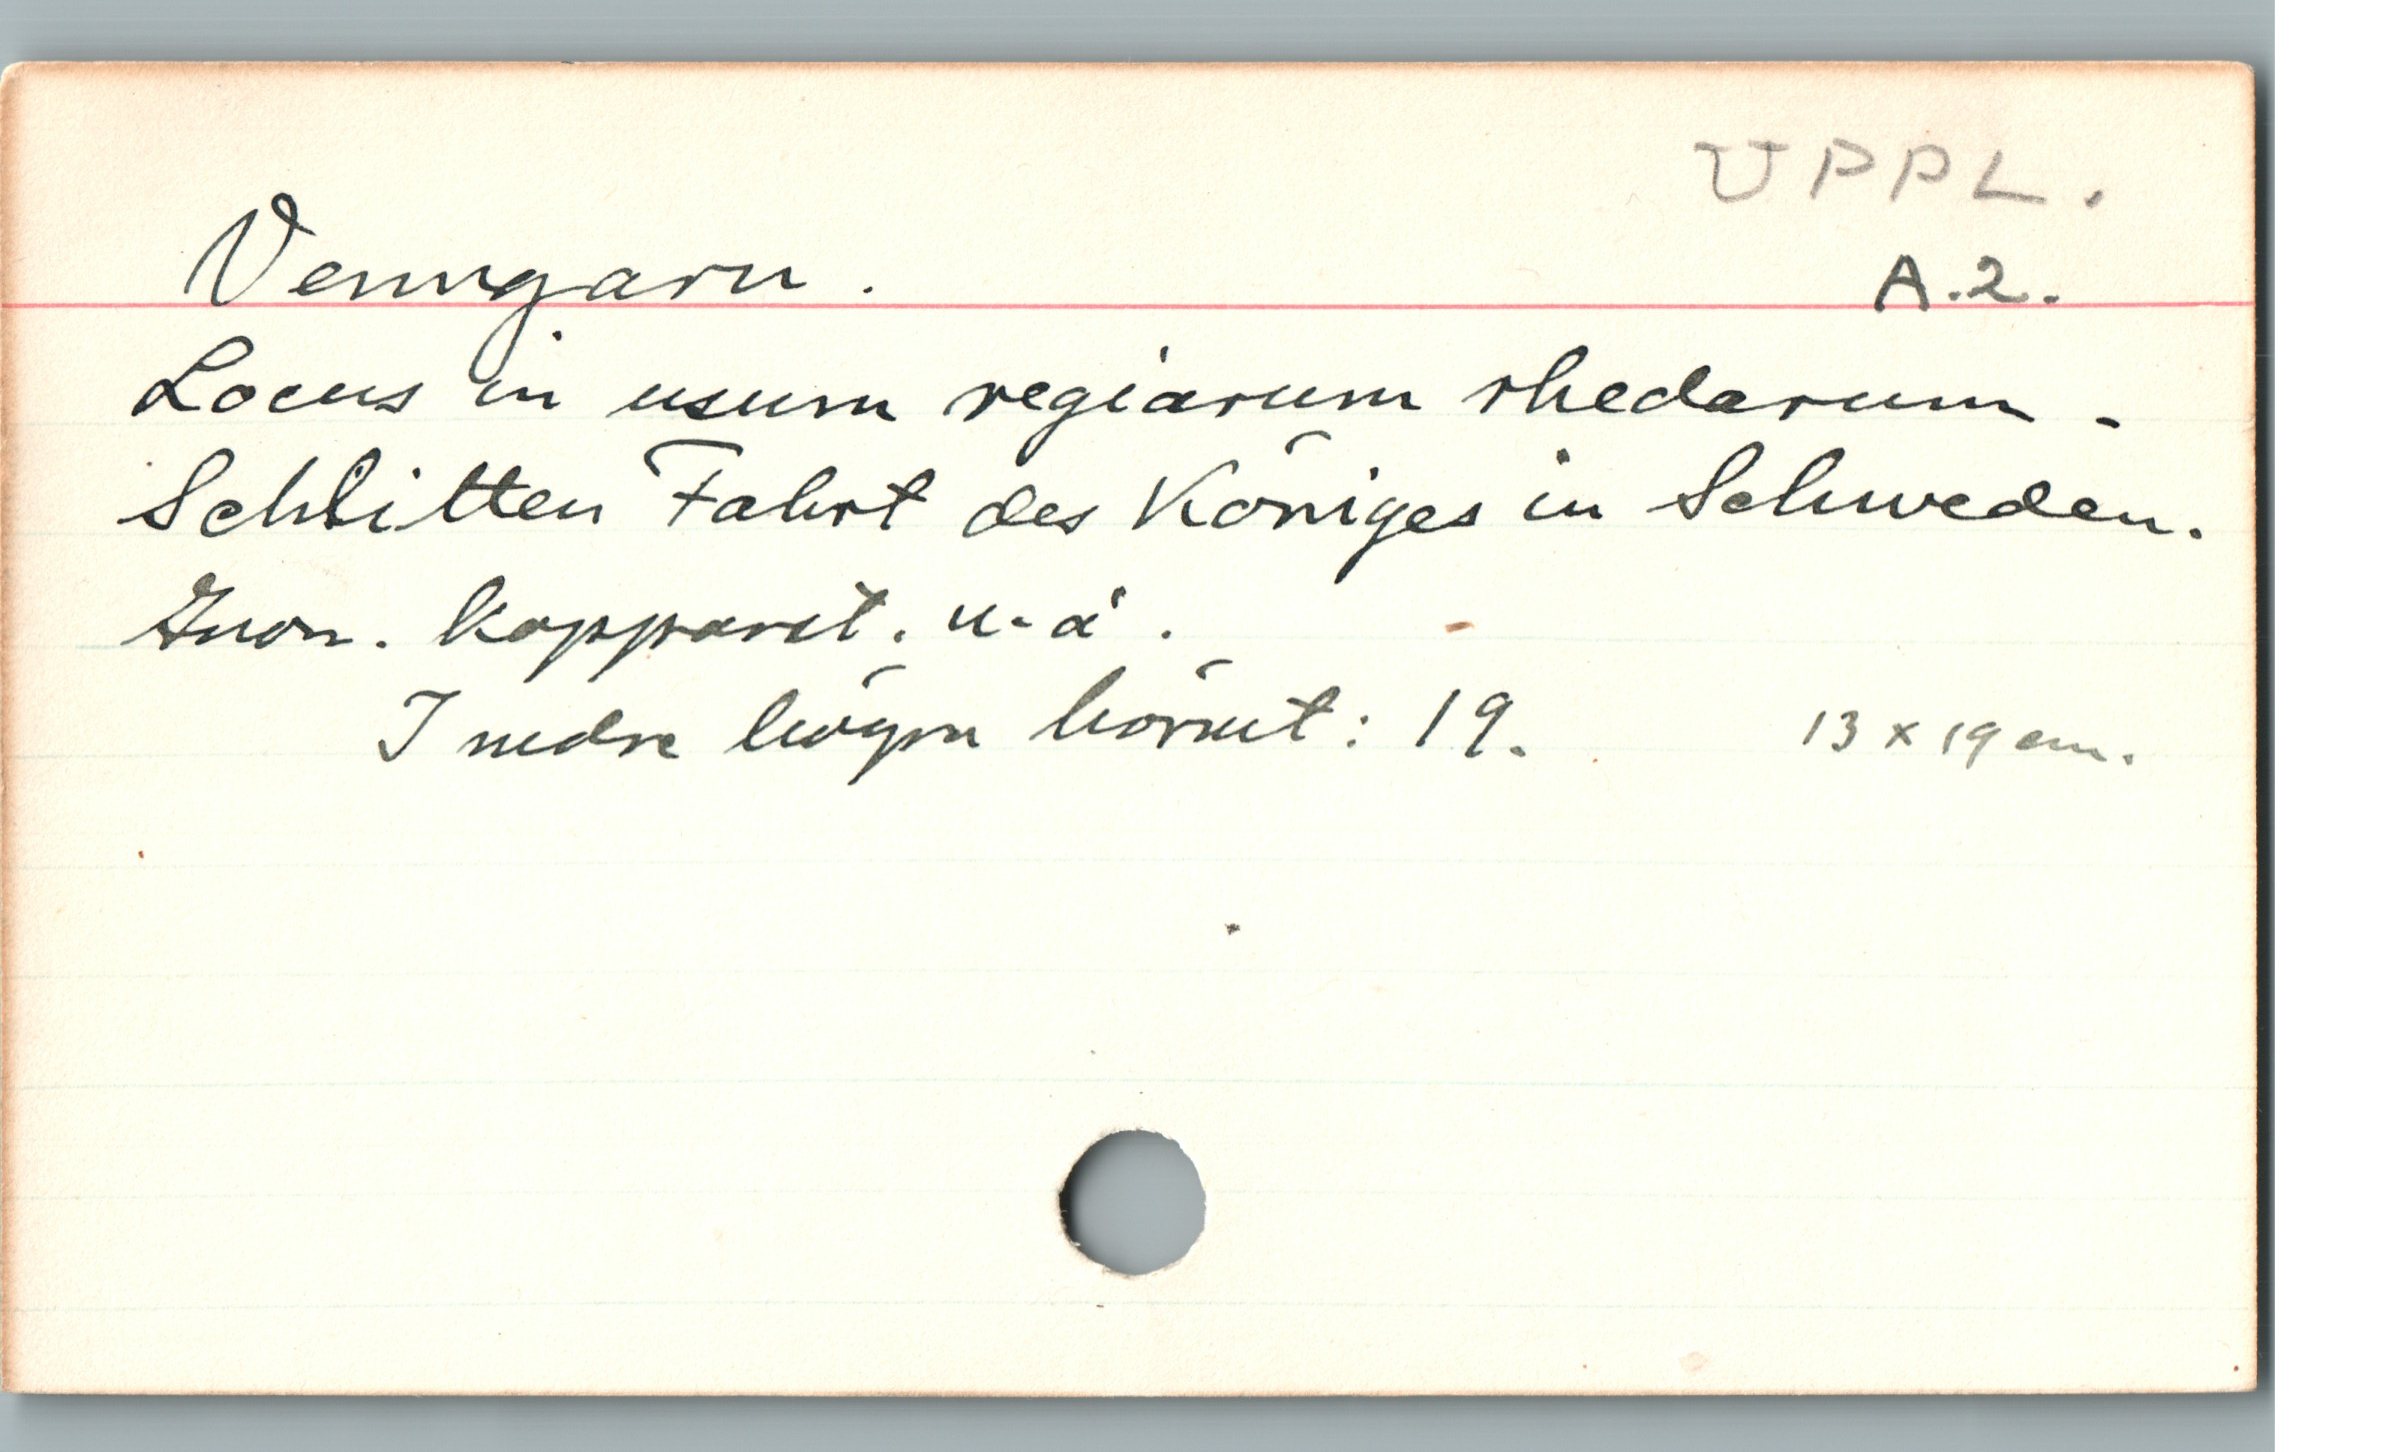 UPPL.
Venngarn.
A.2.
Locus in usum regiarum rhedarum -
Schlitten Fahrt des Königes in Schweden.
Anon. kopparst. u. å.
I nedre högra hörnet: 19.
13 x 19 cm.